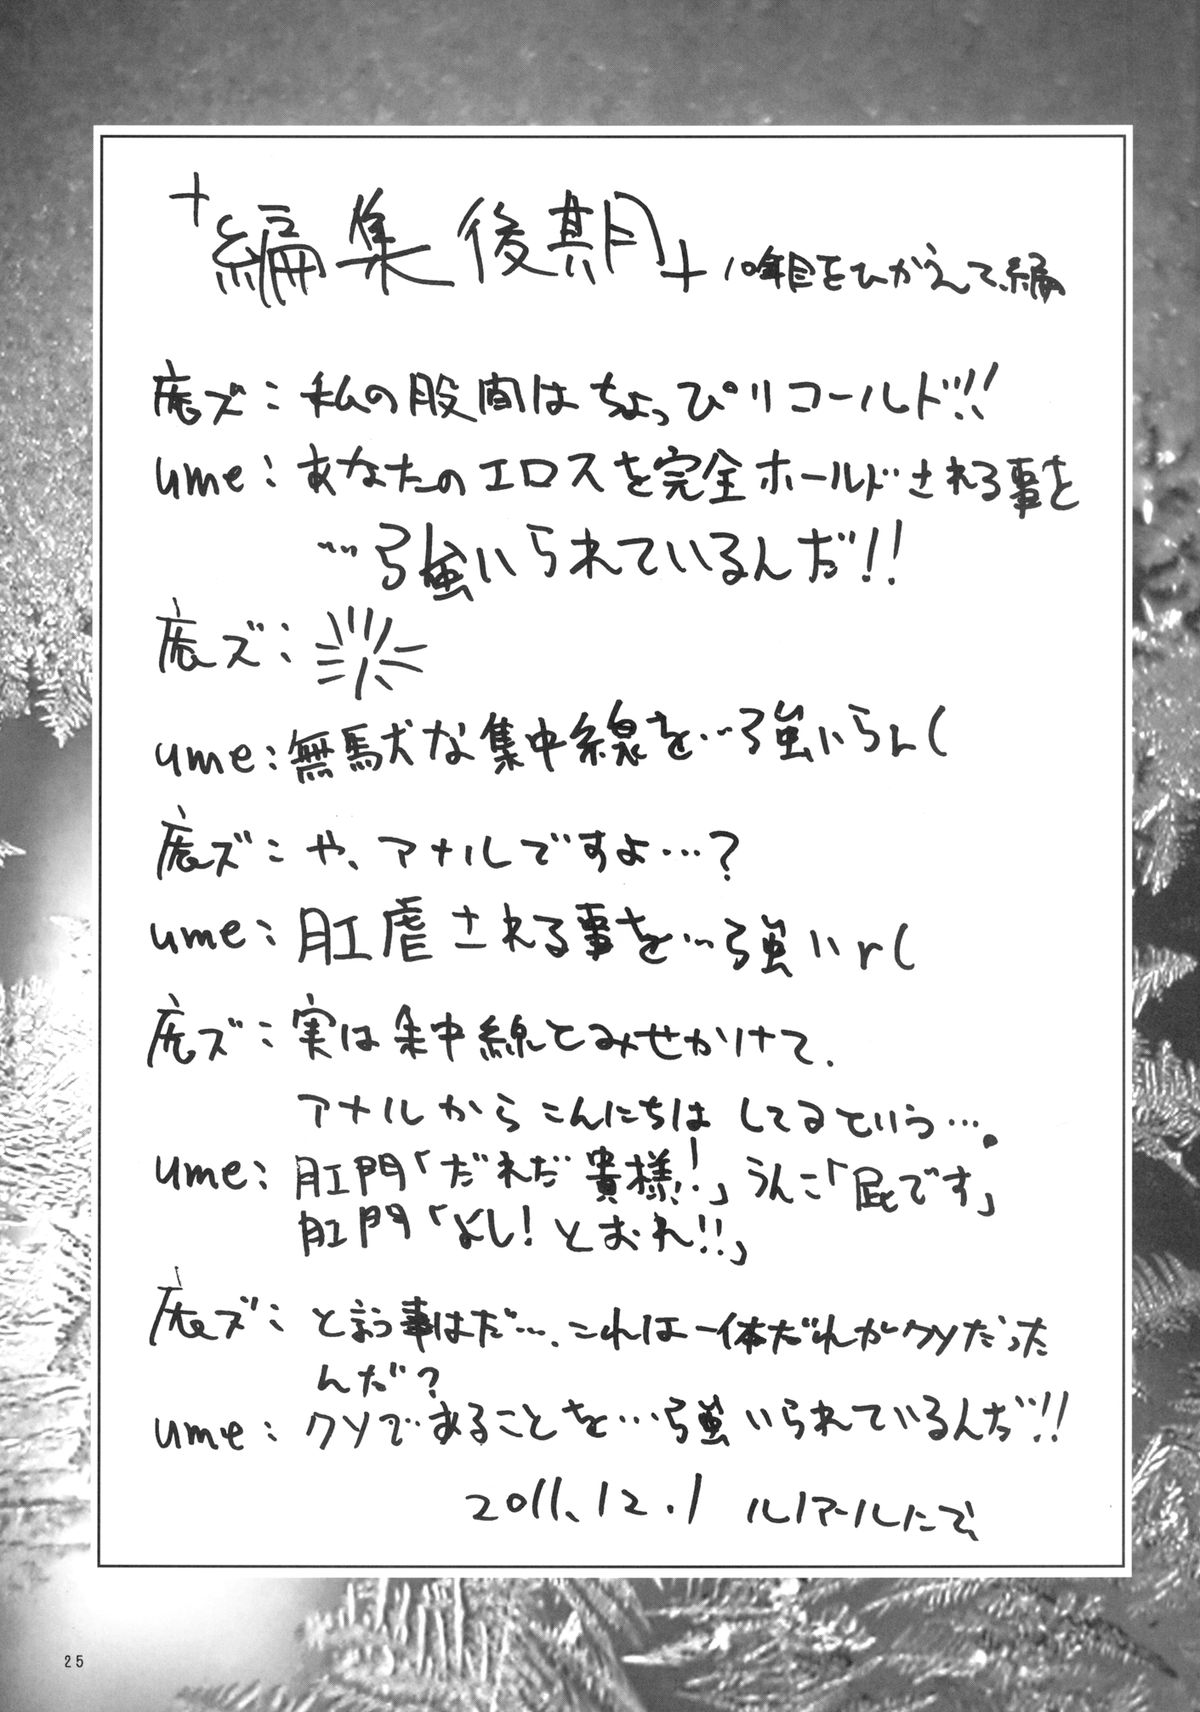 +編集後期+ 10年目をひかえて編
庶ズ:私の股間はちょっぴりコールド!!!
ume:あなたのエロスを完全ホールドされる事を
…弓強いられているんだ!!
庶ズ:
ume:無駄な集中線を…弓強いらん(
庶ズ:や、アナルですよ…?
ume:肛虐される事を…弓強いr(
庶ズ:実は集中線とみせかけて、
アナルからこんにちはしてるという…。
ume:肛門「だれだ貴様!」うんこ「屁です」
肛門「よし!とおれ!!」
庶ズ:と言う事はだ…、これは一体だれがクソだった
んだ?
ume:クソであることを…弓強いられているんだ!!
2011.12.1 ルノアールにて
25